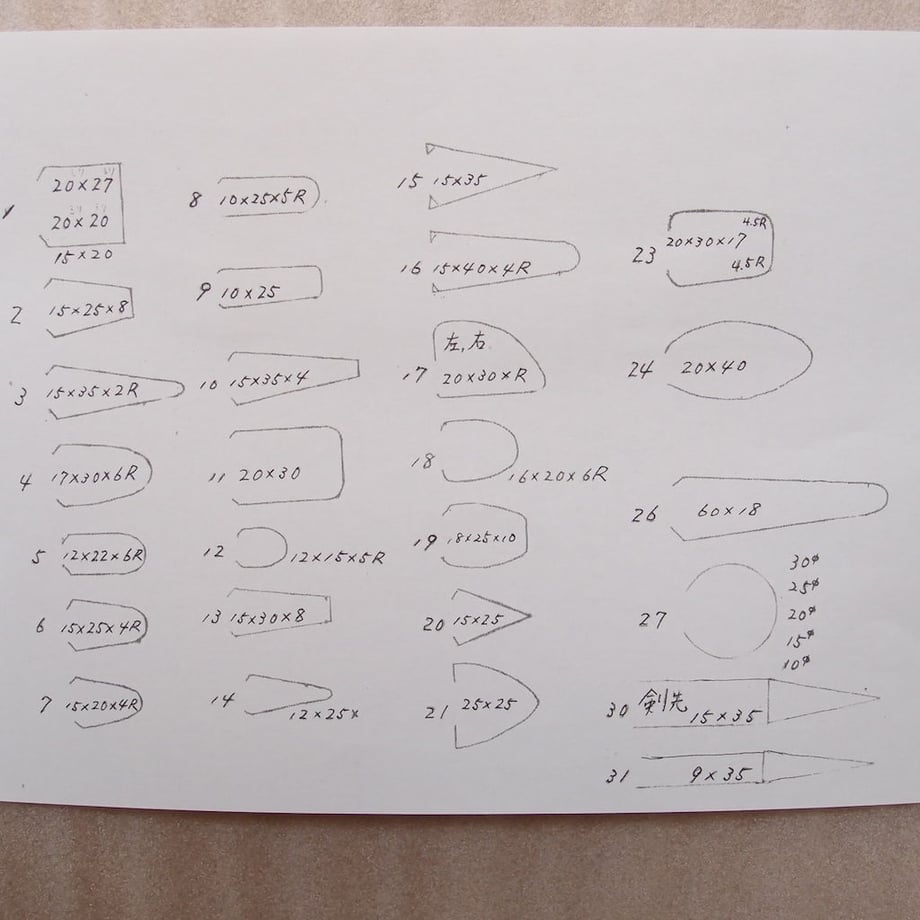 1 20×27
20×20
15×20
2 15×25×8
3 15×35×2R
4 17×30×6R
5 12×22×6R
6 15×25×4R
7 15×20×4R
8 10×25×5R
9 10×25
10 15×35×4
11 20×30
12 12×15×5R
13 15×30×8
14 12×25×
15 15×35
16 15×40×4R
左,右
17 20×30×R
18 16×20×6R
19 18×25×10
20 15×25
21 25×25
4.5R
23 20×30×17
4.5R
24 20×40
26 60×18
27
30φ
25φ
20φ
15φ
10φ
30 剣先 15×35
31 9×35